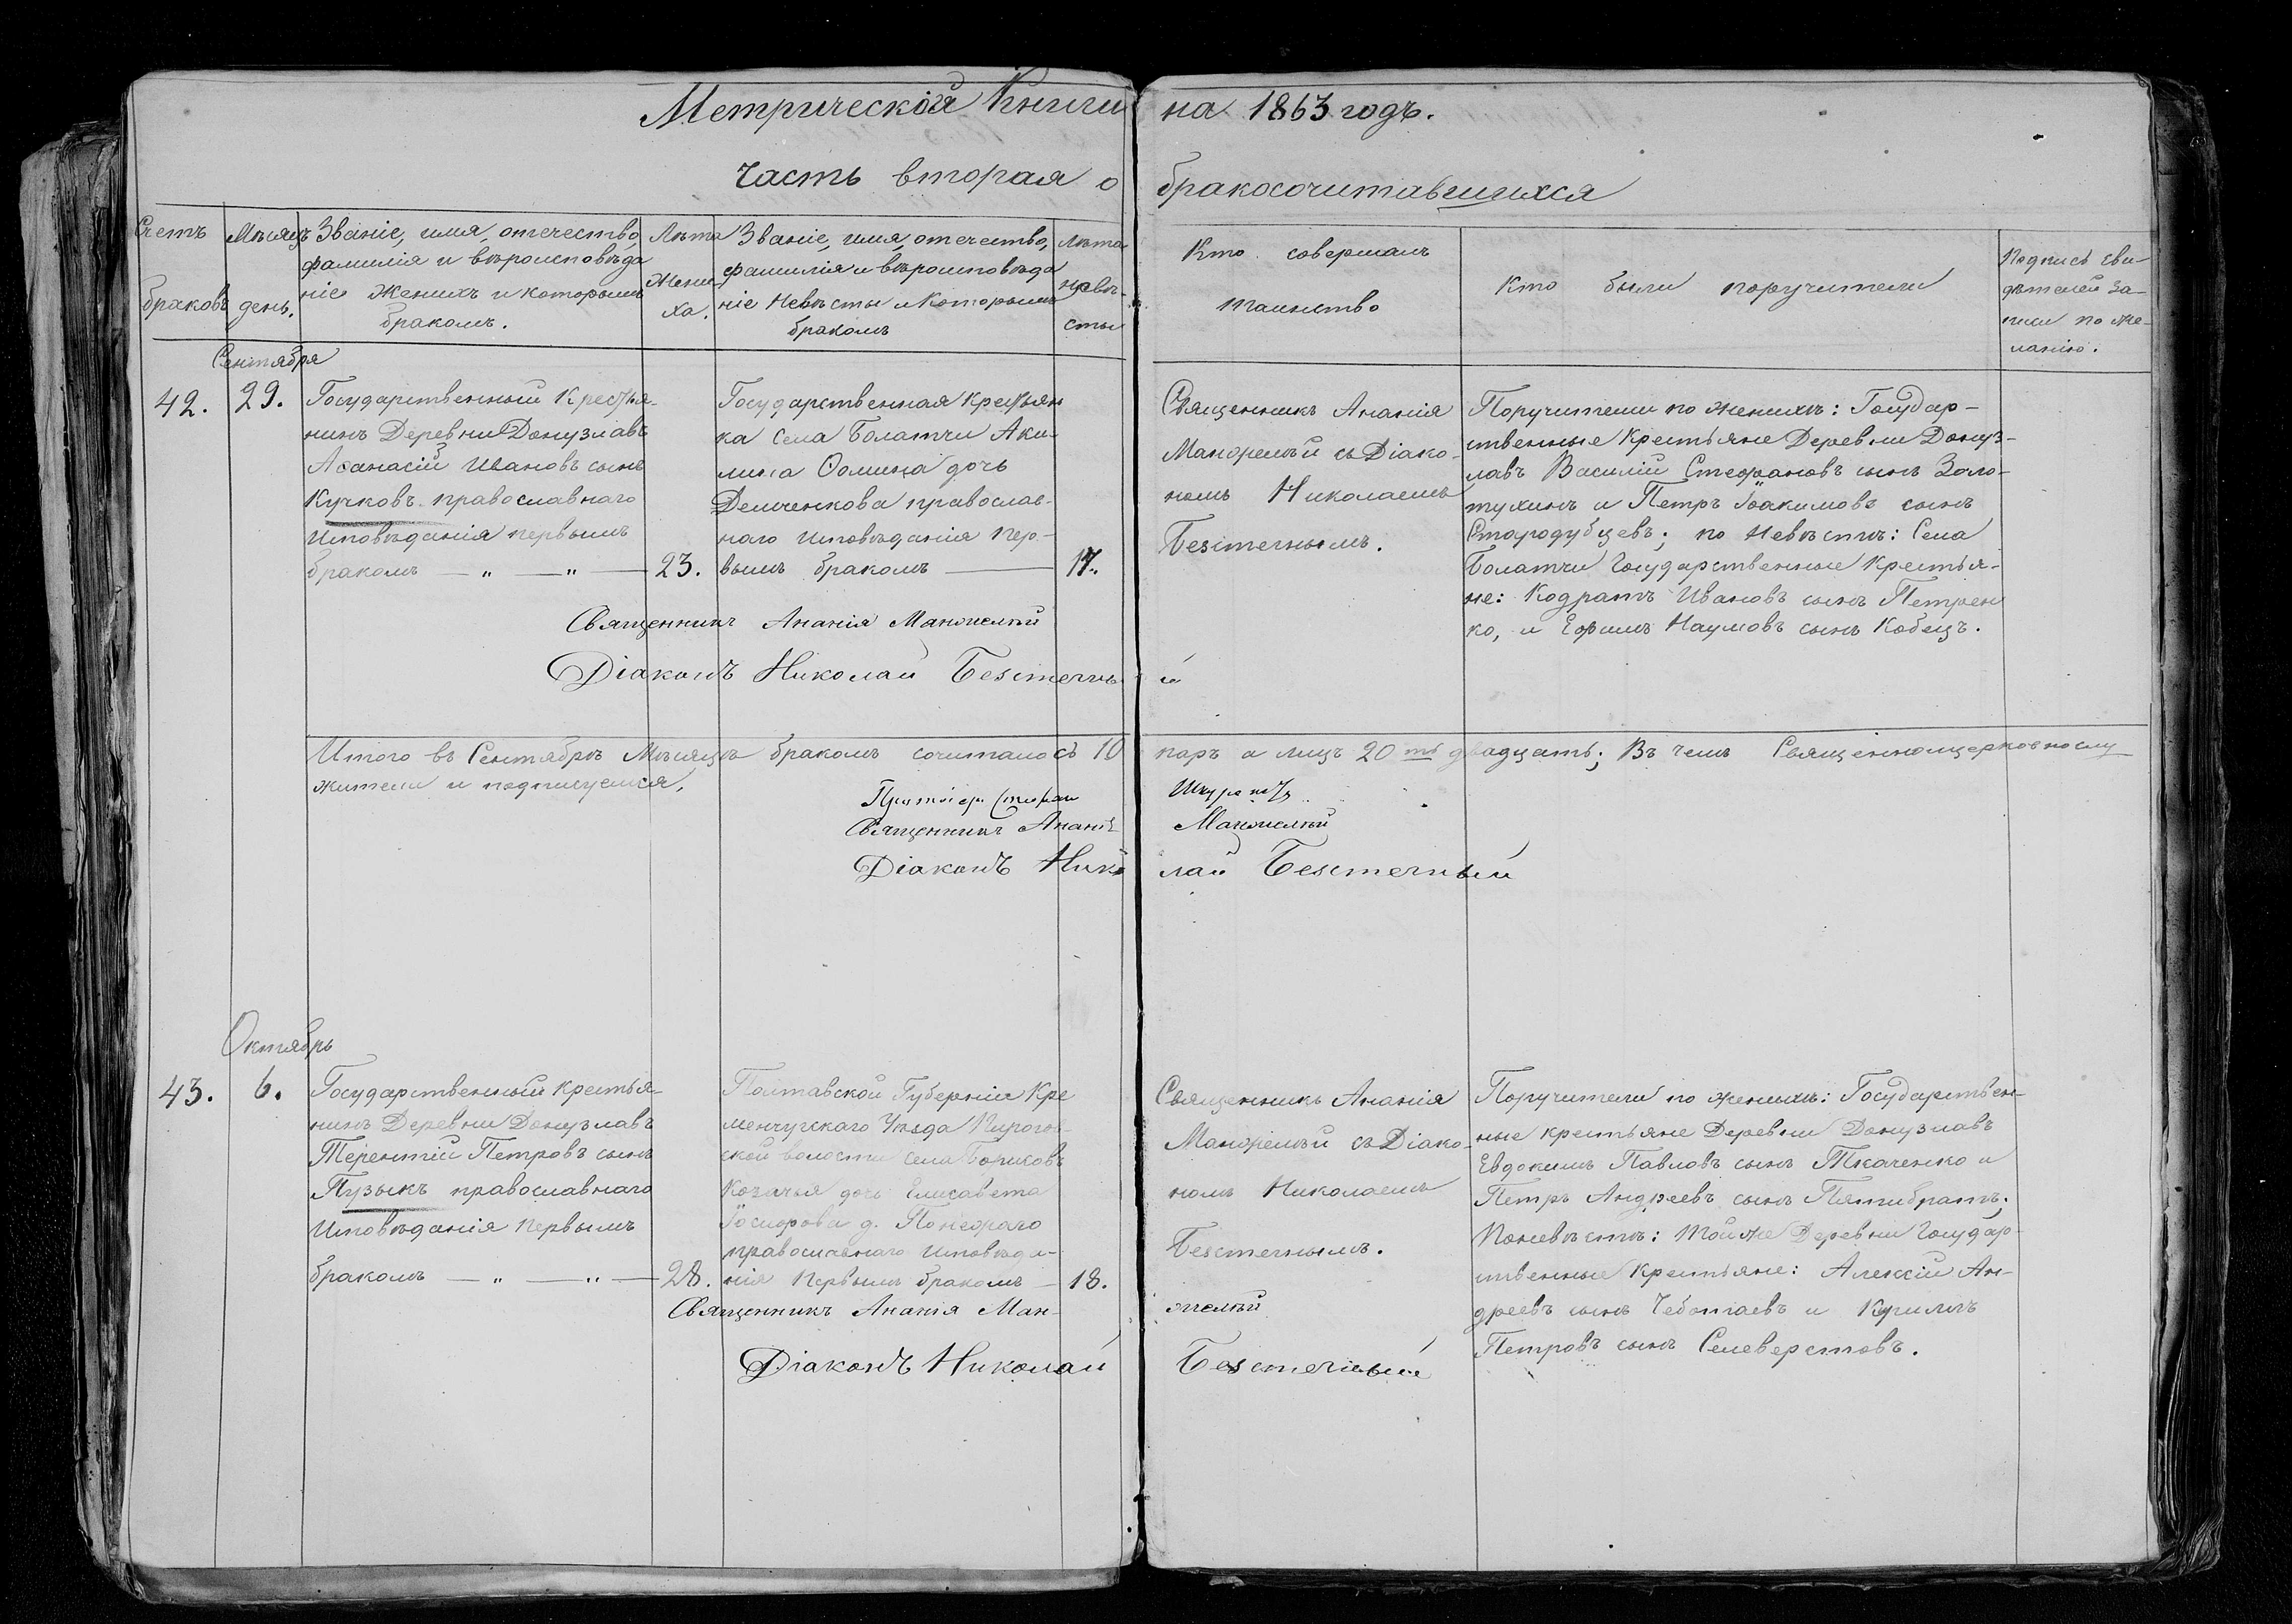 Метрической Книги на 1863 годъ.
часть вторая о бракосочитавшихся
Счетъ браковъ
Мѣсяцъ день.
Званіе, имя, отечество,
фамилія и вѣроисповѣда
ніе Женихъ и которымъ
бракомъ.
Лѣта
Жени
ха.
Званіе, имя, отечество,
фамилія и вѣроисповѣда
ніе Невѣсты и Которымъ
бракомъ
Лѣта
невѣ-
сты
Кто совершалъ
таинство
Кто были поручители
Подпись сви-
дѣтелей за-
писи по же-
ланію.
Сентября
42. 29.
Государственный Крестья-
нинъ Деревни Донузлавъ
Аѳанасій Ивановъ сынъ
Кучковъ православнаго
Исповѣданія первымъ
бракомъ — „ — „ — 23.
Государственная Крестьян
ка Села Болатчи Аки-
лина Ѳомина дочь
Демченкова православ-
наго Исповѣданія пер-
вымъ бракомъ — 17.
Священникъ Ананія
съ Діако-
номъ Николаемъ
Безстечнымъ.
Поручители по женихѣ: Государ-
ственные Крестьяне Деревни Донуз-
лавъ Василій Стефановъ сынъ Золо-
тухинъ и Петръ Іоакимовъ сынъ
Стародубцевъ; по Невѣстѣ: Села
Болатчи Государственные Крестья-
не: Кодратъ Ивановъ сынъ Петрен
ко, и Ефимъ Наумовъ сынъ Кобецъ.
Священникъ Ананія
Діаконъ Николай Безстечный
Итого въ Сентябрѣ Мѣсяцѣ бракомъ сочиталось 10 паръ а лицъ 20ть двадцать; Въ чемъ Священноцерковнослу
жители и подписуемся,
Священникъ Ананія
Діаконъ Николай Безстечный
Октябрь
43. 6.
Государственный Крестья-
нинъ Деревни Донузлавъ
Терентій Петровъ сынъ
Пузыкъ православнаго
Исповѣданія первымъ
бракомъ — „ — „ — 28.
Полтавской Губерніи Кре
менчугскаго Уѣзда Пирогов-
ской волости села Бориковъ
Козачья дочь Елисавета
Іосифова д.
православнаго Исповѣда-
нія первымъ бракомъ — 18.
Священникъ Ананія
съ Діако-
номъ Николаемъ
Безстечнымъ.
Поручители по женихѣ: Государствен-
ные крестьяне Деревни Донузлавъ
Евдокимъ Павловъ сынъ Ткаченко и
Петръ Андреевъ сынъ Пятибратъ.
По невѣстѣ: Той же Деревни Государ-
ственные Крестьяне: Алексій Ан-
дреевъ сынъ Чеботаевъ и Кирилъ
Петровъ сынъ Селеверстовъ.
Священникъ Ананія
Діаконъ Николай Безстечный